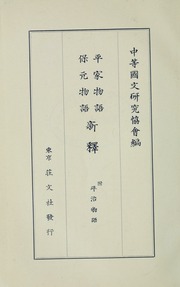 中等國文研究協會編
平家物語
保元物語
新釋
附 平治物語
東京 莊文社發行